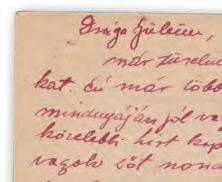 Drága Gyulám,
már
kat. Én már több
mindnyáján jól va
közelebbi hirt kap
vagyok sőt